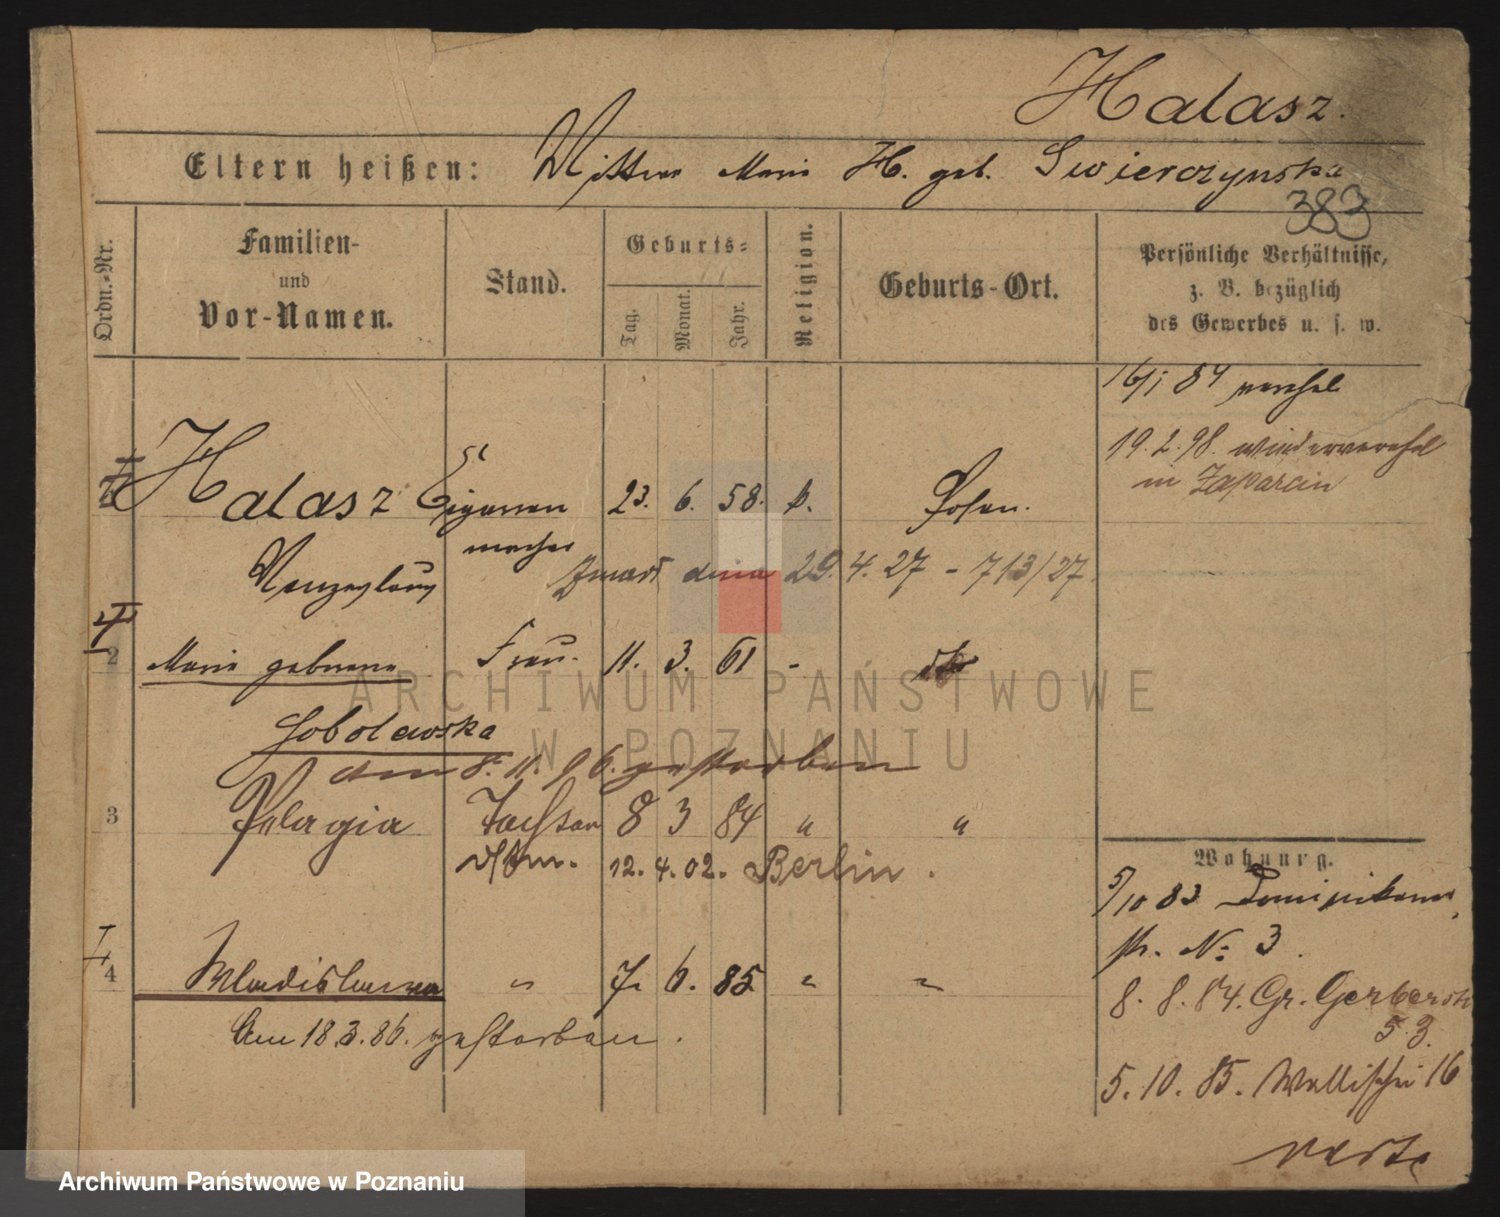 Halasz.
Eltern heißen: Mutter Marie H. geb. Swierczynska
383
Ordn.-Nr.
Familien-
und
Vor-Namen.
Stand.
Geburts-
Tag.
Monat.
Jahr.
Religion.
Geburts-Ort.
Persönliche Verhältnisse,
z. B. bezüglich
des Gewerbes u. s. w.
16/1 84 verehel
19.2.98. wiederverehel
in
Halasz Cigarren 23. 6. 58. k. Posen.
macher
Wenzeslaus
Zmarł dnia 29.4.27 - 713/27
2 Marie geborene Frau. 11. 3. 61 - do
Sobolewska
am 8. 11. 96. gestorben
3 Pelagia Tochter 8 3 84 " "
12.4.02. Berlin.
Wohnung.
5/10 83 Dominikaner
str. No 3.
4 Wladislawa " 7. 6. 85 " "
Am 18.3.86. gestorben.
8. 8. 84. Gr. Gerberstr
53.
5. 10. 85. Wallischei 16
verte
ARCHIWUM PAŃSTWOWE
W POZNANIU
Archiwum Państwowe w Poznaniu